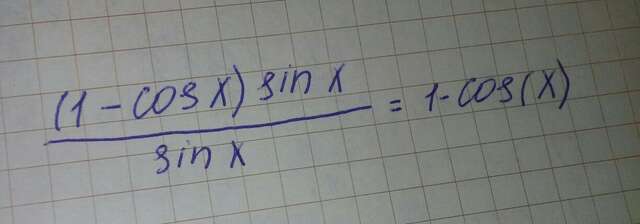 (1 - cos x) sin x
sin x
= 1 - cos(x)